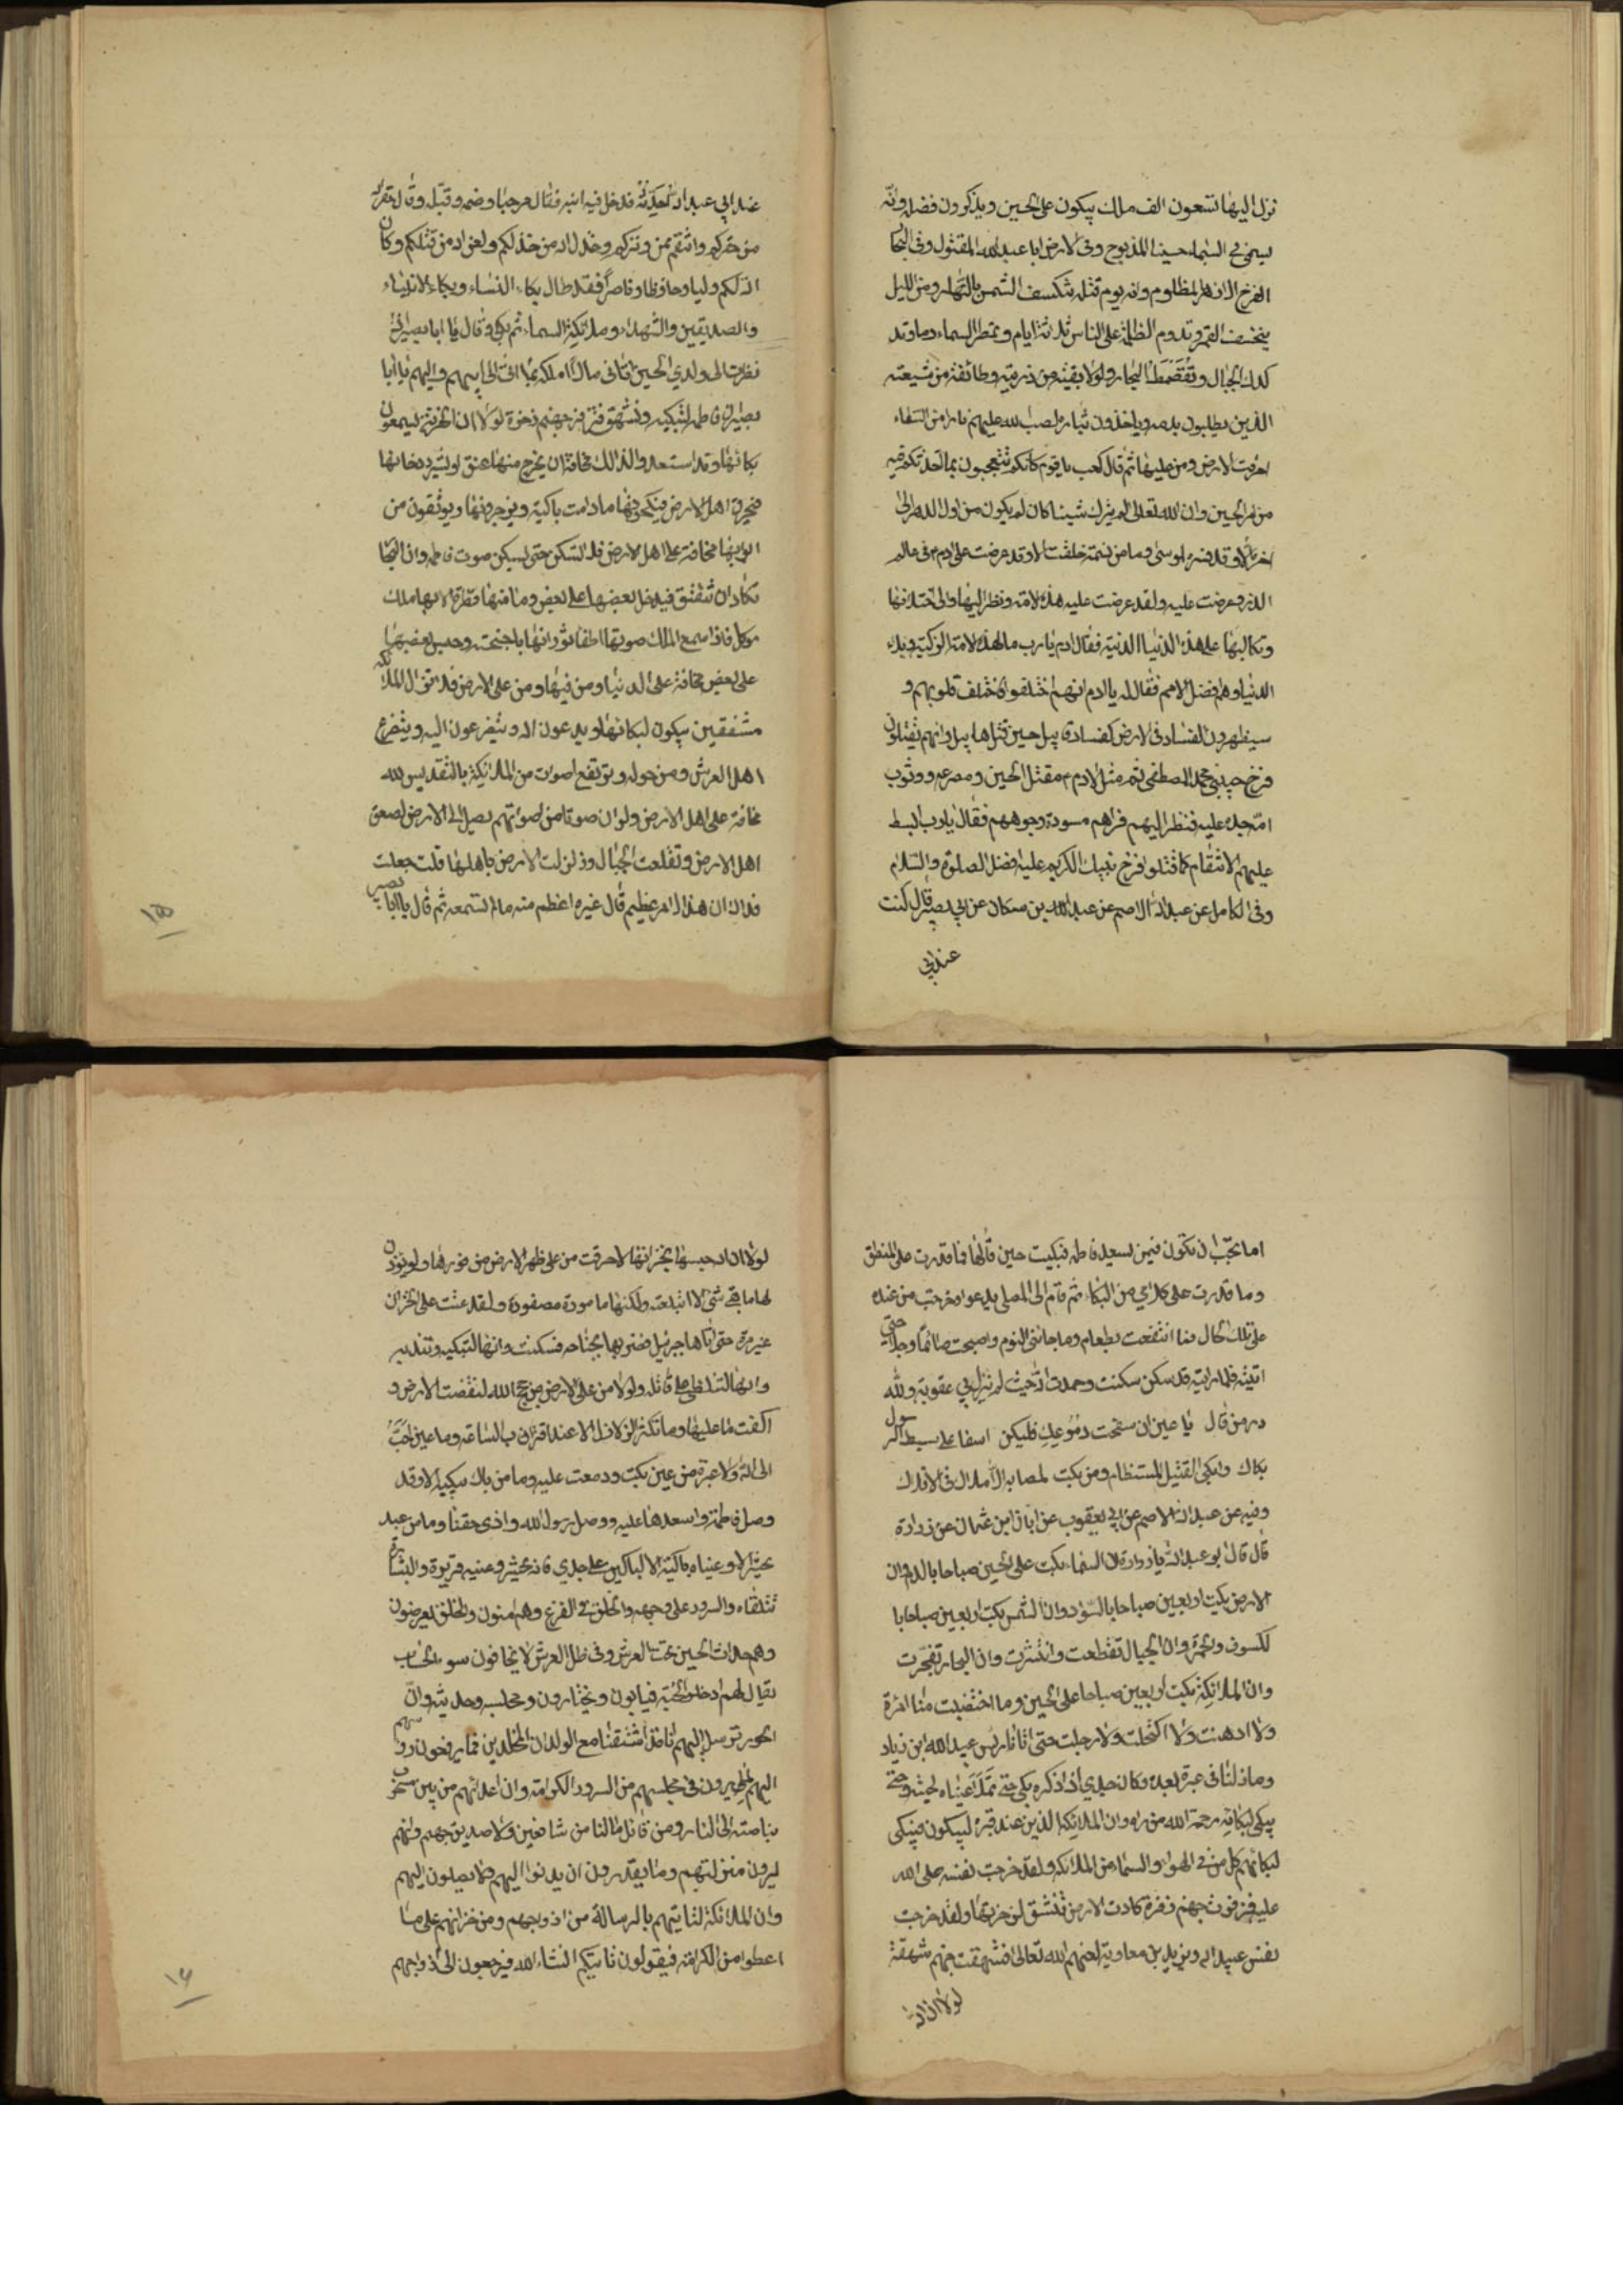 نزل اليها تسعون الف ملك يبكون على الحسين ويذكرون فضله وانه
يسمى في السماء حسينا المذبوح وفى الارض ابا عبد الله المقتول وفى البحار
الفرخ الازهر المظلوم وانه يوم قتله تنكسف الشمس بالنهار ومن الليل
ينخسف القمر وتدوم الظلمة على الناس ثلاثة ايام وتمطر السماء دما وتد
كدك الجبال وتغطمط البحار ولولا بقيته من ذريته وطائفة من شيعته
الذين يطلبون بدمه وياخذون بثاره لصب الله عليهم نارا من السماء
احرقت الارض ومن عليها ثم قال كعب يا قوم كانكم تتعجبون بما احدثكم فيه
من امر الحسين وان الله تعالى لم يترك شيئا كان او يكون من اول الدهر الى
اخره الا وقد فسره لموسى وما من نسمة خلقت الا وقد عرضت على ادم في عالم
الذر وعرضت عليه ولقد عرضت عليه هذه الامة ونظر اليها والى اختلافها
وتكالبها على هذه الدنيا الدنية فقال ادم يا رب ما لهذه الامة الزكية وبلاء
الدنيا وهم افضل الامم فقال له يا ادم انهم اختلفوا فاختلف قلوبهم و
سيظهرون الفساد فى الارض كفساد قابيل حين قتل هابيل وانهم يقتلون
فرخ حبيبي محمد المصطفى ثم مثل لادم م مقتل الحسين ومصرعه ووثوب
امة جده عليه فنظر اليهم فراهم مسودة وجوههم فقال يا رب ابسط
عليهم الانتقام كما قتلوا فرخ نبيك الكريم عليه افضل الصلوة والسلام
وفى الكامل عن عبد الله الاصم عن عبد الله بن مسكان عن ابي بصير قال كنت
عند ابي
عند ابي عبد الله احدثه فدخل فيه ابنه فقال مرحبا وضمه وقبله وقال حقر الله
من حقركم وانتقم ممن وتركم وخذل الله من خذلكم ولعن الله من قتلكم وكان
الله لكم وليا وحافظا وناصرا فقد طال بكاء النساء وبكاء الانبياء
والصديقين والشهداء وملائكة السماء ثم بكى وقال يا ابا بصير اذا
نظرت الى ولدي الحسين اتاني مالا املكه بما اتى الى ابيهم واليهم يا ابا
بصير ان فاطمة لتبكيه وتشهق فتزفر جهنم زفرة لولا ان الخزنة يسمعون
بكائها وقد استعدوا لذالك مخافة ان يخرج منها عنق او يشرد دخانها
فيحرق اهل الارض فيكبحونها ما دامت باكية ويزجرونها ويوثقون من
ابوابها مخافة على اهل الارض فلا تسكن حتى يسكن صوت فاطمة وان البحار
تكاد ان تنفتق فيدخل بعضها على بعض وما منها قطرة الا بها ملك
موكل فاذا سمع الملك صوتها اطفا ثورانها باجنحته وحبس بعضها
على بعض مخافة على الدنيا ومن فيها ومن على الارض فلا تزال الملائكة
مشفقين يبكون لبكائها ويدعون الله ويتضرعون اليه ويتضرع
اهل العرش ومن حوله وترتفع اصوات من الملائكة بالتقديس لله
مخافة على اهل الارض ولو ان صوتا من اصواتهم يصل الى الارض لصعق
اهل الارض وتقلعت الجبال وزلزلت الارض باهلها قلت جعلت
فداك ان هذا الامر عظيم قال غيره اعظم منه مالم تسمعه ثم قال يا ابا بصير
١٥
اما تحب ان تكون فيمن يسعد فاطمة فبكيت حين قالها فما قدرت على المنطق
وما قدرت على كلامي من البكاء ثم قام الى المصلى يدعو وخرجت من عنده
على تلك الحال فما انتفعت بطعام وما جائنى النوم واصبحت صائما وجلا حتى
اتيته فلما رايته قد سكن سكنت وحمدت الله حيث لم تنزل بي عقوبة ولله
در من قال يا عين ان سفحت دموعك فليكن اسفا على سبط الرسول
بكاك وابكى القتيل المستظام ومن بكت لمصابه الاملاك فى الافلاك
وفيه عن عبد الله الاصم عن ابي يعقوب عن ابان ابن عثمان عن زرارة
قال قال ابو عبد الله يا زرارة ان السماء بكت على الحسين صباحا بالدم وان
الارض بكت اربعين صباحا بالسواد وان الشمس بكت اربعين صباحا با
لكسوف والحمرة وان الجبال تقطعت وانتثرت وان البحار تفجرت
وان الملائكة بكت اربعين صباحا على الحسين وما اختضبت منا امرة
ولا ادهنت ولا اكتحلت ولا رجلت حتى اتانا راس عبيد الله ابن زياد
وما زلنا فى عبرة بعده وكان جدي اذا ذكره بكى حتى تملا عيناه لحيته وحتى
يبكى لبكائه رحمة الله من راه وان الملائكة الذين عند قبره ليبكون فيبكى
لبكائهم كل من في الهواء والسماء من الملائكة ولقد خرجت نفسه صلى الله
عليه فزفرت جهنم زفرة كادت الارض تنشق لزفرتها ولقد خرجت
نفس عبيد الله ويزيد بن معاوية لعنهم الله تعالى فشهقت جهنم شهقة
لولا ان الله
لولا ان الله حبسها بخزانها لاحرقت من على ظهر الارض من فورها ولو يؤذن
لها ما بقى شئ الا ابتلعته ولكنها مامورة مصفودة ولقد عتت على الخزان
غير مرة حتى اتاها جبرئيل فضربها بجناحه فسكنت وانها لتبكيه وتندبه
وانها لتتلظى على قاتله ولولا من على الارض من حجج الله لنقضت الارض و
اكفت ما عليها وما تكثر الزلازل الا عند اقتراب الساعة وما عين احب
الى الله ولا عبرة من عين بكت ودمعت عليه وما من باك يبكيه الا وقد
وصل فاطمة واسعدها عليه ووصل رسول الله وادى حقنا وما من عبد
يحشر الا وعيناه باكية الا الباكين على جدي فانه يحشر وعينيه قريرة والبشارة
تتلقاه والسرور على وجهه والخلق في الفزع وهم امنون والخلق يعرضون
وهم حداث الحسين تحت العرش وفى ظل العرش لا يخافون سوء الحساب
يقال لهم ادخلوا الجنة فيابون ويختارون مجلسه وحديثه وان
الحور ترسل اليهم انا قد اشتقنا مع الولدان المخلدين فما يرفعون رؤسهم
اليهم لما يرون فى مجلسهم من السرور والكرامة وان اعدائهم من بين مسحوب
بناصته الى النار ومن قائل ما لنا من شافعين ولا صديق حميم وانهم
ليرون منزلتهم وما يقدرون ان يدنوا اليهم ولا يصلون اليهم
وان الملائكة لتاتيهم بالرسالة من ازواجهم ومن خزانهم على ما
اعطوا من الكرامة فيقولون ناتيكم انشاء الله فيرجعون الى ازواجهم
١٦